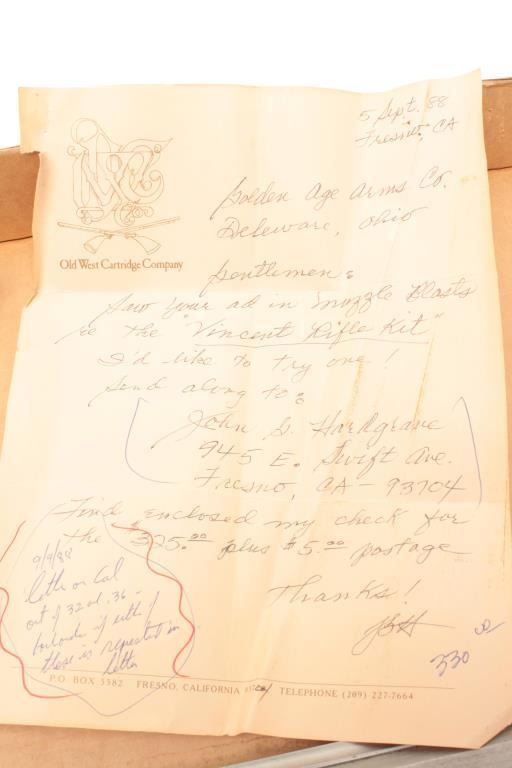 5 Sept. 88
Fresno, CA
Old West Cartridge Company
Golden Age Arms Co.
Deleware, Ohio
Gentlemen:
Saw your ad in Muzzle Blasts
re the "Vincent Rifle Kit"
I'd like to try one!
Send along to:
John G. Hardgrave
945 E. Swift Ave.
Fresno, CA - 93704
Find enclosed my check for
the $325.00 plus $5.00 postage
Thanks!
JGH
330
9/9/88
out of 32 or .36 -
if either of
these is requested in
letter
P.O. BOX 5382 FRESNO, CALIFORNIA TELEPHONE (209) 227-7664